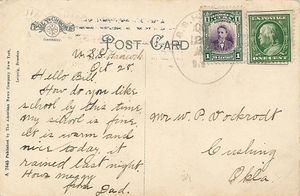 POST CARD
Oct 28,
Hello Bill
How do you like
school by this time
my school is fine.
It is warm and
nice today it
rained last night.
How meny
from Dad.
Mr W. P. Wockrodt
Cushing
Okla
1 1
ONE CENT
A 7048 Published by The American News Company New York,
Leipzig, Dresden